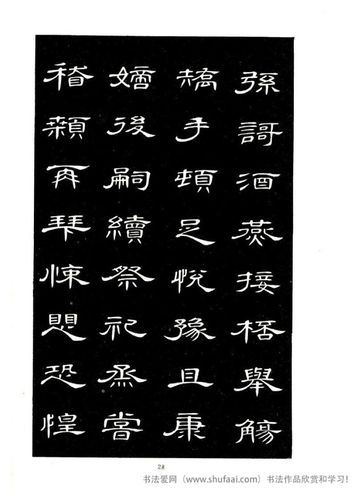 弦謌酒燕接桮舉觴
矯手頓足悅豫且康
嫡後嗣續祭祀烝嘗
稽顙再拜悚愳恐惶
28
书法爱网（www.shufaai.com）书法作品欣赏和学习!